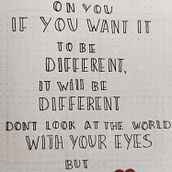 ON YOU
IF YOU WANT IT
TO BE
DIFFERENT,
IT WiLL BE
DIFFERENT
DONT LOOK AT THE WORLD
WITH YOUR EYES
BUT